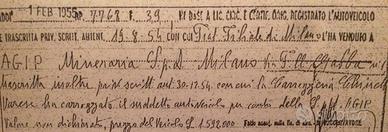 1 FEB 1955 N. 7768 F. 39 IN BASE A LIC. CIRC. E CERTIF. ORIG. REGISTRATO L'AUTOVEICOLO
E TRASCRITTA PRIV. SCRITT. AUTENT. 19.8.54 CON CUI Fiat Filiale di Milano HA VENDUO A
AGIP Mineraria S.p.A Milano Via F.lli Gabba
trascritta inoltre priv. scritt. aut. 30.12.54 con cui la Carrozzeria
Varese ha carrozzato il suddetto autoveicolo per conto della S.p.A. AGIP
Valore non dichiarato, prezzo del veicolo L. 1592000